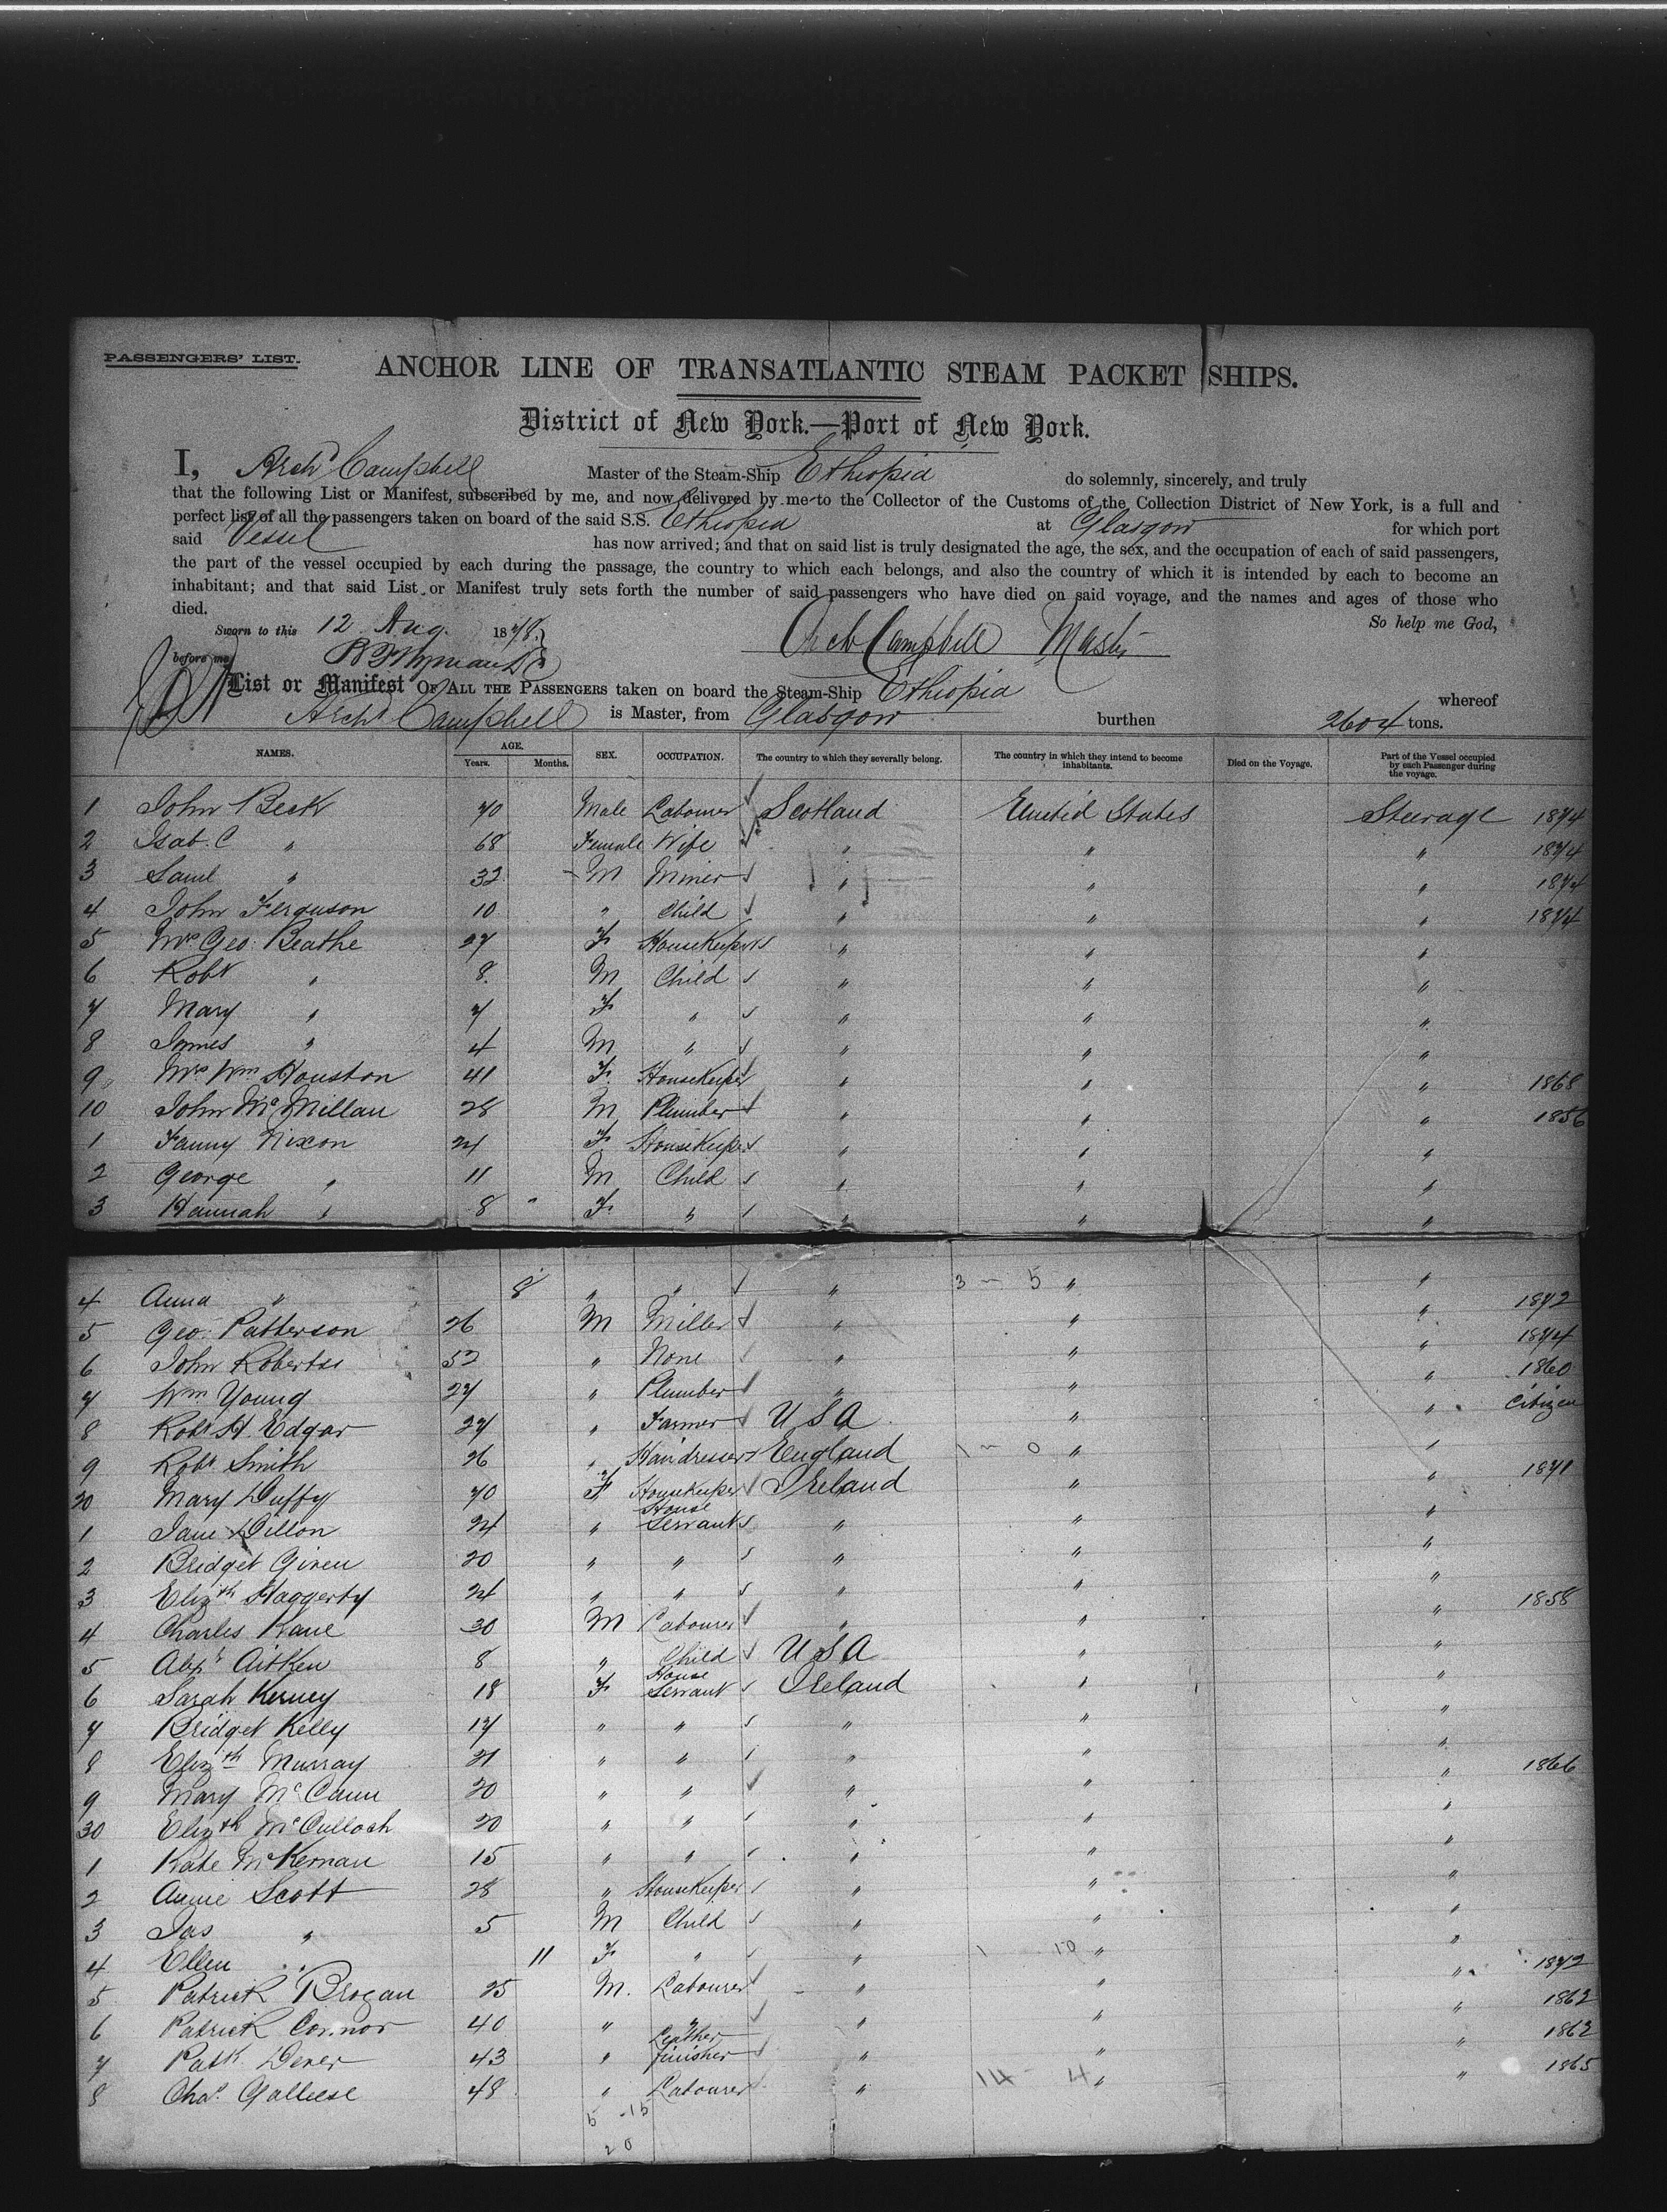 PASSENGERS' LIST.
ANCHOR LINE OF TRANSATLANTIC STEAM PACKET SHIPS.
District of New York.—Port of New York.
I, Archd Campbell Master of the Steam-Ship Ethiopia do solemnly, sincerely, and truly
that the following List or Manifest, subscribed by me, and now delivered by me to the Collector of the Customs of the Collection District of New York, is a full and
perfect list of all the passengers taken on board of the said S.S. Ethiopia at Glasgow for which port
said Vessel has now arrived; and that on said list is truly designated the age, the sex, and the occupation of each of said passengers,
the part of the vessel occupied by each during the passage, the country to which each belongs, and also the country of which it is intended by each to become an
inhabitant; and that said List or Manifest truly sets forth the number of said passengers who have died on said voyage, and the names and ages of those who
died. So help me God,
Sworn to this 12 Aug. 1878. Arch Campbell Master
before me
List or Manifest OF ALL THE PASSENGERS taken on board the Steam-Ship Ethiopia whereof
Archd Campbell is Master, from Glasgow burthen 2604 tons.
NAMES. AGE. Years. Months. SEX. OCCUPATION. The country to which they severally belong. The country in which they intend to become inhabitants. Died on the Voyage. Part of the Vessel occupied by each Passenger during the voyage.
1 John Beck 70 Male Labourer Scotland United States Steerage 1874
2 Isab. C " 68 Female Wife " " " 1874
3 Saml " 32 M Miner " " " 1874
4 John Ferguson 10 " Child " " " 1874
5 Mrs Geo. Beathe 27 F Housekeeper " " "
6 Robt " 8 M Child " " "
7 Mary " 7 F " " " "
8 James " 4 M " " " "
9 Mrs Wm Houston 41 F Housekeeper " " " 1868
10 John McMillan 28 M Plumber " " " 1856
1 Fanny Nixon 24 F Housekeeper " " "
2 George " 11 M Child " " "
3 Hannah " 8 F " " " "
4 Anna " 8 " " " 3 - 5 " "
5 Geo. Patterson 26 M Miller " " " 1872
6 John Robertson 52 " None " " " 1874
7 Wm Young 27 " Plumber " " " 1860
8 Robt H. Edgar 27 " Farmer U S A " " Citizen
9 Robt Smith 26 " Hairdresser England 1 - 0 " "
20 Mary Duffy 70 F Housekeeper Ireland " " 1871
1 Jane Dillon 24 " House Servant " " "
2 Bridget Given 20 " " " " "
3 Elizth Haggerty 24 " " " " "
4 Charles Kane 30 M Labourer " " " 1858
5 Alexr Aitken 8 " Child U S A " "
6 Sarah Kerney 18 F House Servant Ireland " "
7 Bridget Kelly 17 " " " " "
8 Elizth Murray 21 " " " " "
9 Mary McCann 20 " " " " " 1866
30 Elizth McCulloch 20 " " " " "
1 Kate McKernan 15 " " " " "
2 Annie Scott 28 " Housekeeper " " "
3 Jas " 5 M Child " " "
4 Ellen " 11 F " " 1 10 " "
5 Patrick Brogan 25 M. Labourer " " " 1872
6 Patrick Connor 40 " " " " " 1862
7 Patk Dever 43 " Leather finisher " " " 1862
8 Chas. Galliese 48 " Labourer " 14 - 4 " " 1865
5 - 15
20